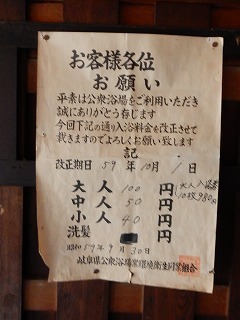 お客様各位
お願い
平素は公衆浴場をご利用いただき
誠にありがとう存じます
今回下記の通り入浴料金を改正させて
戴きますのでよろしくお願い致します
記
改正期日 59年10月1日
大人 100円 (大人入浴券
10枚 980円)
中人 50円
小人 40円
洗髪 円
昭和59年9月30日
岐阜県公衆浴場業環境衛生同業組合